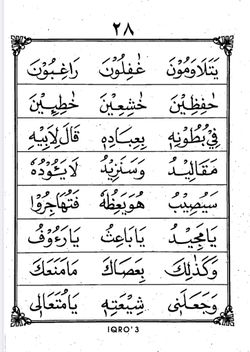 ٢٨
يَتَلَاوَمُوْنَ غٰفِلُوْنَ رَاغِبُوْنَ
حٰفِظِيْنَ خٰشِعِيْنَ خٰطِـِٕيْنَ
فِيْ بُطُوْنِهٖ بِعِبَادِهٖ قَالَ لِاَبِيْهِ
مَقَالِيْدُ وَسَنَزِيْدُ لَا يَئُوْدُهٗ
سَيُصِيْبُ هُوَ يَعِظُهٗ فَتُهَاجِرُوْا
يَا مَجِيْدُ يَا بَاعِثُ يَا رَءُوْفُ
وَكَذٰلِكَ بِعَصَاكَ مَا مَنَعَكَ
وَجَعَلَنِيْ شِيْعَتِهٖ يَا مُتَعَالِيْ
IQRO'3